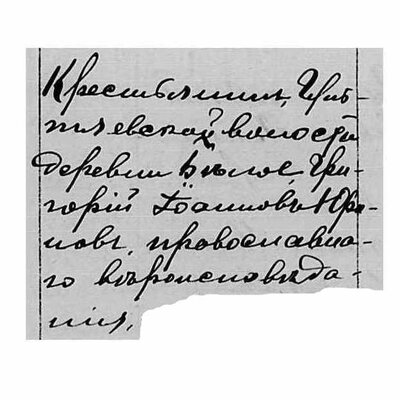 Крестьянин, Цив-
плевской волости
деревни Бѣлое Гри-
горій Іоанновъ Юри-
новъ, провославна-
го вѣроисповѣда-
нія,